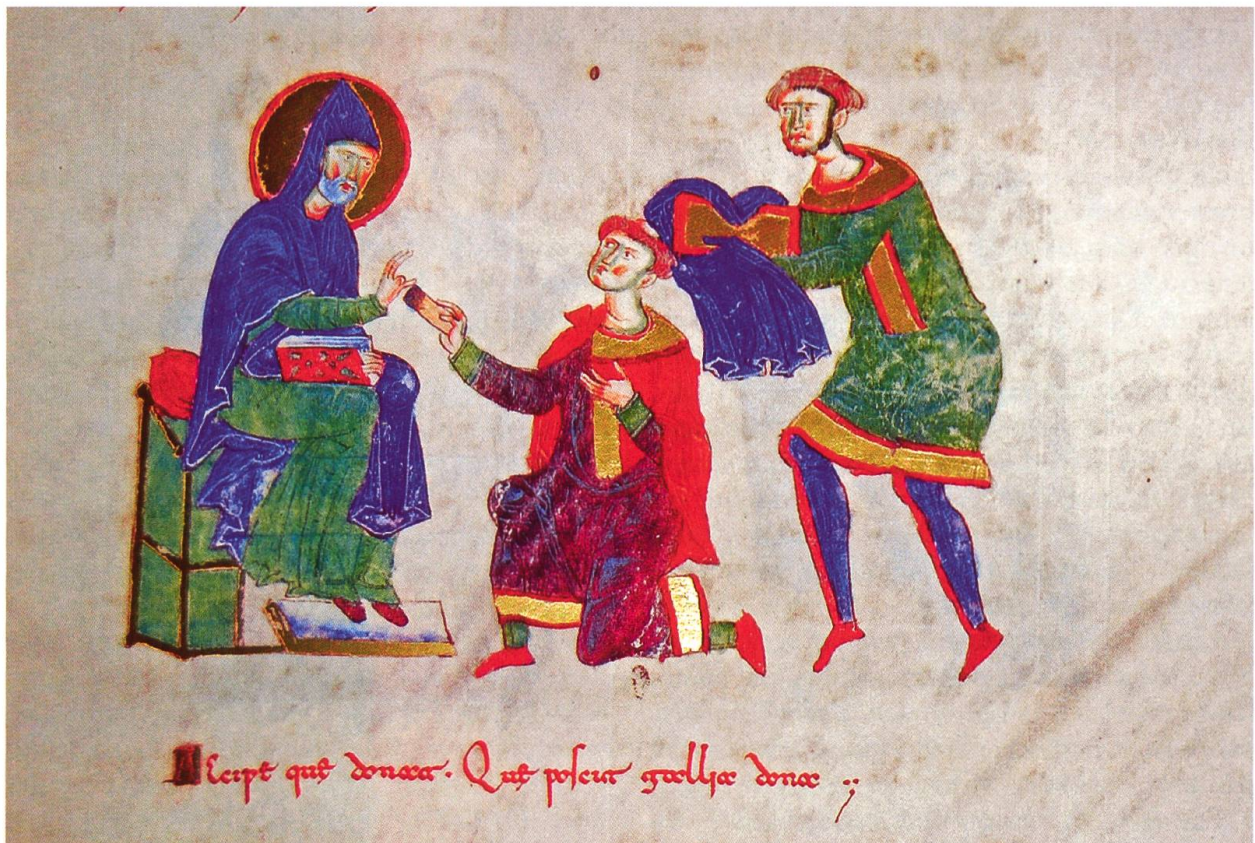 Accipt quę donat. Quę poscit gallia dona ;